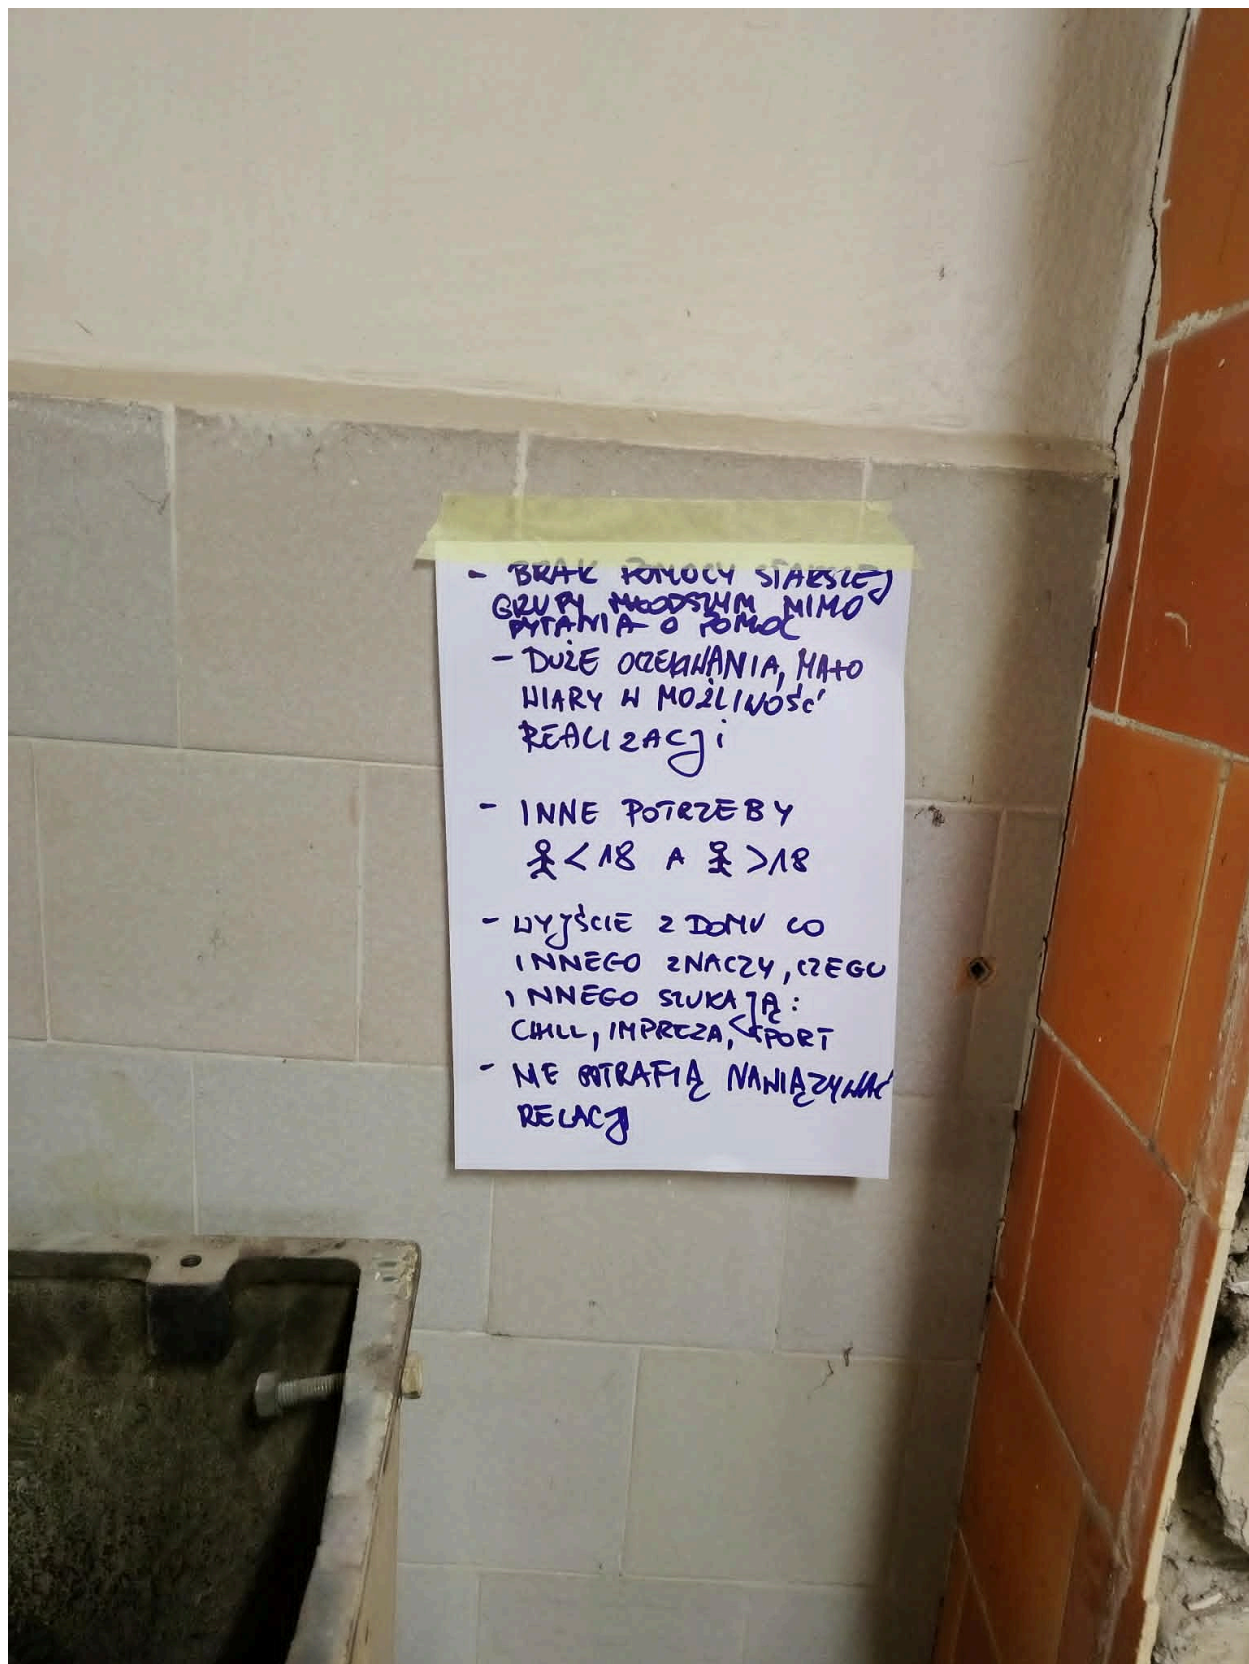 - BRAK POMOCY STARSZEJ
GRUPY MŁODSZYM MIMO
PYTANIA O POMOC
- DUŻE OCZEKIWANIA, MAŁO
WIARY W MOŻLIWOŚĆ
REALIZACJI
- INNE POTRZEBY
<18 A >18
- WYJŚCIE Z DOMU CO
INNEGO ZNACZY, CZEGO
INNEGO SZUKAJĄ:
CHILL, IMPREZA, SPORT
- NIE POTRAFIĄ NAWIĄZYWAĆ
RELACJI